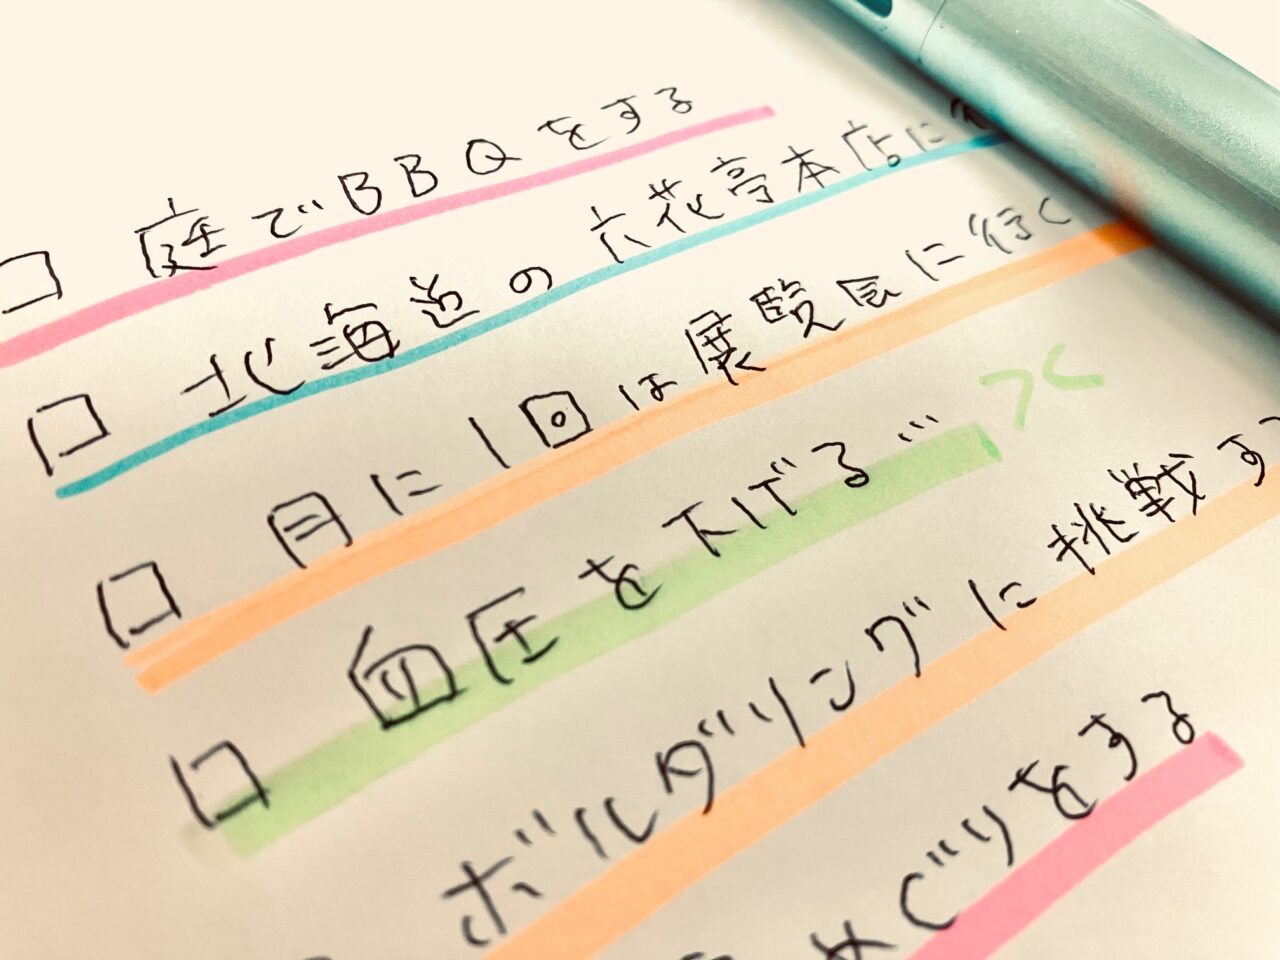 □ 庭でBBQをする
□ 北海道の六花亭本店に
□ 月に1回は展覧会に行く
□ 血圧を下げる…
ボルダリングに挑戦す
めぐりをする